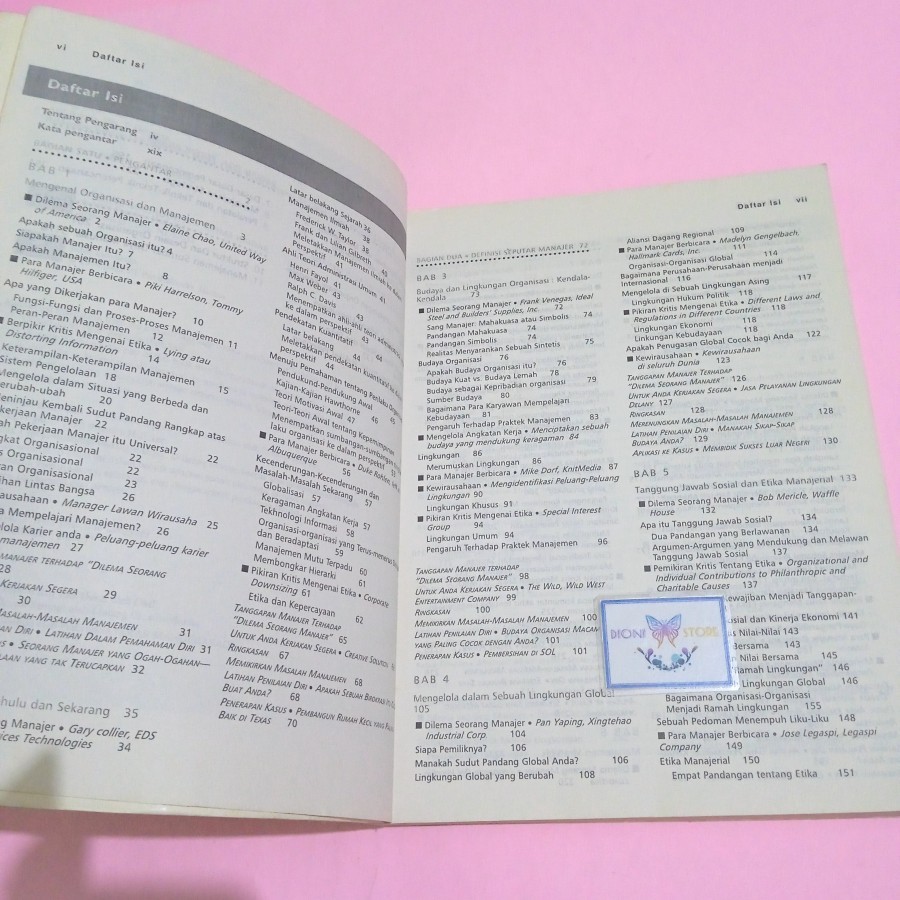 vi Daftar Isi
Daftar Isi
Tentang Pengarang iv
Kata pengantar xix
BAGIAN SATU • PENGANTAR 2
BAB 1
Mengenal Organisasi dan Manajemen 3
■ Dilema Seorang Manajer • Elaine Chao, United Way
of America 2
Apakah sebuah Organisasi itu? 4
Siapakah Manajer Itu? 7
Apakah Manajemen Itu? 8
■ Para Manajer Berbicara • Piki Harrelson, Tommy
Hilfiger, USA
Apa yang Dikerjakan para Manajer? 10
Fungsi-Fungsi dan Proses-Proses Manajemen 11
Peran-Peran Manajemen 12
■ Berpikir Kritis Mengenai Etika • Lying atau
Distorting Information 14
Keterampilan-Keterampilan Manajemen 15
Sistem Pengelolaan 18
Mengelola dalam Situasi yang Berbeda dan
erubah-ubah 20
Meninjau Kembali Sudut Pandang Rangkap atas
Pekerjaan Manajer 22
ah Pekerjaan Manajer itu Universal? 22
gkat Organisasional 22
s Organisasional 22
ran Organisasional 23
lintas Bangsa 26
rausahaan • Manager Lawan Wirausaha 25
a Mempelajari Manajemen? 26
lola Karier anda • Peluang-peluang karier
manajemen 27
MANAJER TERHADAP "DILEMA SEORANG
28
KERJAKAN SEGERA 29
30
MASALAH-MASALAH MANAJEMEN 31
AN DIRI • LATIHAN DALAM PEMAHAMAN DIRI 31
US • SEORANG MANAJER YANG OGAH-OGAHAN—
LAAN YANG TAK TERUCAPKAN 32
hulu dan Sekarang 35
ng Manajer • Gary collier, EDS
ices Technologies 34
Latar belakang Sejarah 36
Manajemen Ilmiah 38
Frederick W. Taylor 38
Frank dan Lilien Gilbreth 40
Meletakkan Manajemen Ilmiah ke dalam
Perspektif 41
Ahli Teori Administrasi Umum 41
Henri Fayol 41
Max Weber 43
Ralph C. Davis 43
Menempatkan ahli-ahli teori administrasi
ke dalam perspektif 43
Pendekatan Kuantitatif 44
Latar belakang 44
Meletakkan pendekatan kuantitatif ke
perspektif 44
Menuju Pemahaman tentang Perilaku Organisasi
Pendukung-Pendukung Awal 45
Kajian-Kajian Hawthorne 46
Teori Motivasi Awal 47
Teori-Teori Awal tentang Kepemimpinan
Menempatkan sumbangan-sumbangan
laku organisasi ke dalam perspektif
■ Para Manajer Berbicara • Duke
Albuquerque 56
Kecenderungan-Kecenderungan dan
Masalah-Masalah Sekarang 57
Globalisasi 57
Keragaman Angkatan Kerja 57
Tekhnologi Informasi 58
Organisasi-organisasi yang Terus-menerus
dan Beradaptasi 59
Manajemen Mutu Terpadu 60
Membongkar Hierarki 61
■ Pikiran Kritis Mengenai Etika • Corporate
Downsizing 61
Etika dan Kepercayaan 62
TANGGAPAN MANAJER TERHADAP
"DILEMA SEORANG MANAJER" 65
UNTUK ANDA KERJAKAN SEGERA • CREATIVE
RINGKASAN 67
MEMIKIRKAN MASALAH MANAJEMEN 68
LATIHAN PENILAIAN DIRI • APAKAH SEBUAH BIROKRASI
BUAT ANDA? 68
PENERAPAN KASUS • PEMBANGUN RUMAH KECIL YANG
BAIK DI TEXAS 70
Daftar Isi vii
BAGIAN DUA • DEFINISI SEPUTAR MANAJER 72
BAB 3
Budaya dan Lingkungan Organisasi : Kendala-
Kendala 73
■ Dilema Seorang Manajer • Frank Venegas, Ideal
Steel and Builders' Supplies, Inc 72
Sang Manajer: Mahakuasa atau Simbolis 74
Pandangan Mahakuasa 74
Pandangan Simbolis 74
Realitas Menyarankan Sebuah Sintetis 75
Budaya Organisasi 76
Apakah Budaya Organisasi itu? 76
Budaya Kuat vs. Budaya Lemah 78
Budaya sebagai Kepribadian organisasi 79
Sumber Budaya 80
Bagaimana Para Karyawan Mempelajari
Kebudayaan 81
Pengaruh Terhadap Praktek Manajemen 83
■ Mengelola Angkatan Kerja • Menciptakan sebuah
budaya yang mendukung keragaman 84
Lingkungan 86
Merumuskan Lingkungan 86
■ Para Manajer Berbicara • Mike Dorf, KnitMedia 87
■ Kewirausahaan • Mengidentifikasi Peluang-Peluang
Lingkungan 90
Lingkungan Khusus 91
■ Pikiran Kritis Mengenai Etika • Special Interest
Group 94
Lingkungan Umum 94
Pengaruh Terhadap Praktek Manajemen 96
TANGGAPAN MANAJER TERHADAP
"DILEMA SEORANG MANAJER" 98
UNTUK ANDA KERJAKAN SEGERA • THE WILD, WILD WEST
ENTERTAINMENT COMPANY 99
RINGKASAN 100
MEMIKIRKAN MASALAH-MASALAH MANAJEMEN 100
LATIHAN PENILAIAN DIRI • BUDAYA ORGANISASI MACAM
YANG PALING COCOK DENGAN ANDA? 101
PENERAPAN KASUS • PEMBERSIHAN DI SOL 101
BAB 4
Mengelola dalam Sebuah Lingkungan Global
105
■ Dilema Seorang Manajer • Pan Yaping, Xingtehao
Industrial Corp. 104
Siapa Pemiliknya? 106
Manakah Sudut Pandang Global Anda? 106
Lingkungan Global yang Berubah 108
Aliansi Dagang Regional 109
■ Para Manajer Berbicara • Madelyn Gengelbach,
Hallmark Cards, Inc. 111
Organisasi-Organisasi Global 114
Bagaimana Perusahaan-Perusahaan menjadi
Internasional 116
Mengelola di Sebuah Lingkungan Asing 117
Lingkungan Hukum Politik 118
■ Pikiran Kritis Mengenai Etika • Different Laws and
Regulations in Different Countries 118
Lingkungan Ekonomi 118
Linkungan Kebudayaan 118
Apakah Penugasan Global Cocok bagi Anda 122
■ Kewirausahaan • Kewirausahaan
di seluruh Dunia 123
TANGGAPAN MANAJER TERHADAP
"DILEMA SEORANG MANAJER" 126
UNTUK ANDA KERJAKAN SEGERA • JASA PELAYANAN LINGKUNGAN
DELANY 127
RINGKASAN 128
MERENUNGKAN MASALAH-MASALAH MANAJEMEN 128
LATIHAN PENILAIAN DIRI • MANAKAH SIKAP-SIKAP
BUDAYA ANDA? 129
APLIKASI KE KASUS • MEMBIDIK SUKSES LUAR NEGERI 130
BAB 5
Tanggung Jawab Sosial dan Etika Manajerial 133
■ Dilema Seorang Manajer • Bob Mericle, Waffle
House 132
Apa itu Tanggung Jawab Sosial? 134
Dua Pandangan yang Berlawanan 134
Argumen-Argumen yang Mendukung dan Melawan
Tanggung Jawab Sosial 137
■ Pemikiran Kritis Tentang Etika • Organizational and
Individual Contributions to Philanthropic and
Charitable Causes 137
Kewajiban Menjadi Tanggapan-
sosial dan Kinerja Ekonomi 141
is Nilai-Nilai 143
Bersama 143
Nilai Bersama 145
"Ramah Lingkungan" 146
h Lingkungan Global 146
Bagaimana Organisasi-Organisasi
Menjadi Ramah Lingkungan 155
Sebuah Pedoman Menempuh Liku-Liku 148
■ Para Manajer Berbicara • Jose Legaspi, Legaspi
Company 149
Etika Manajerial 150
Empat Pandangan tentang Etika 151
DIONE STORE